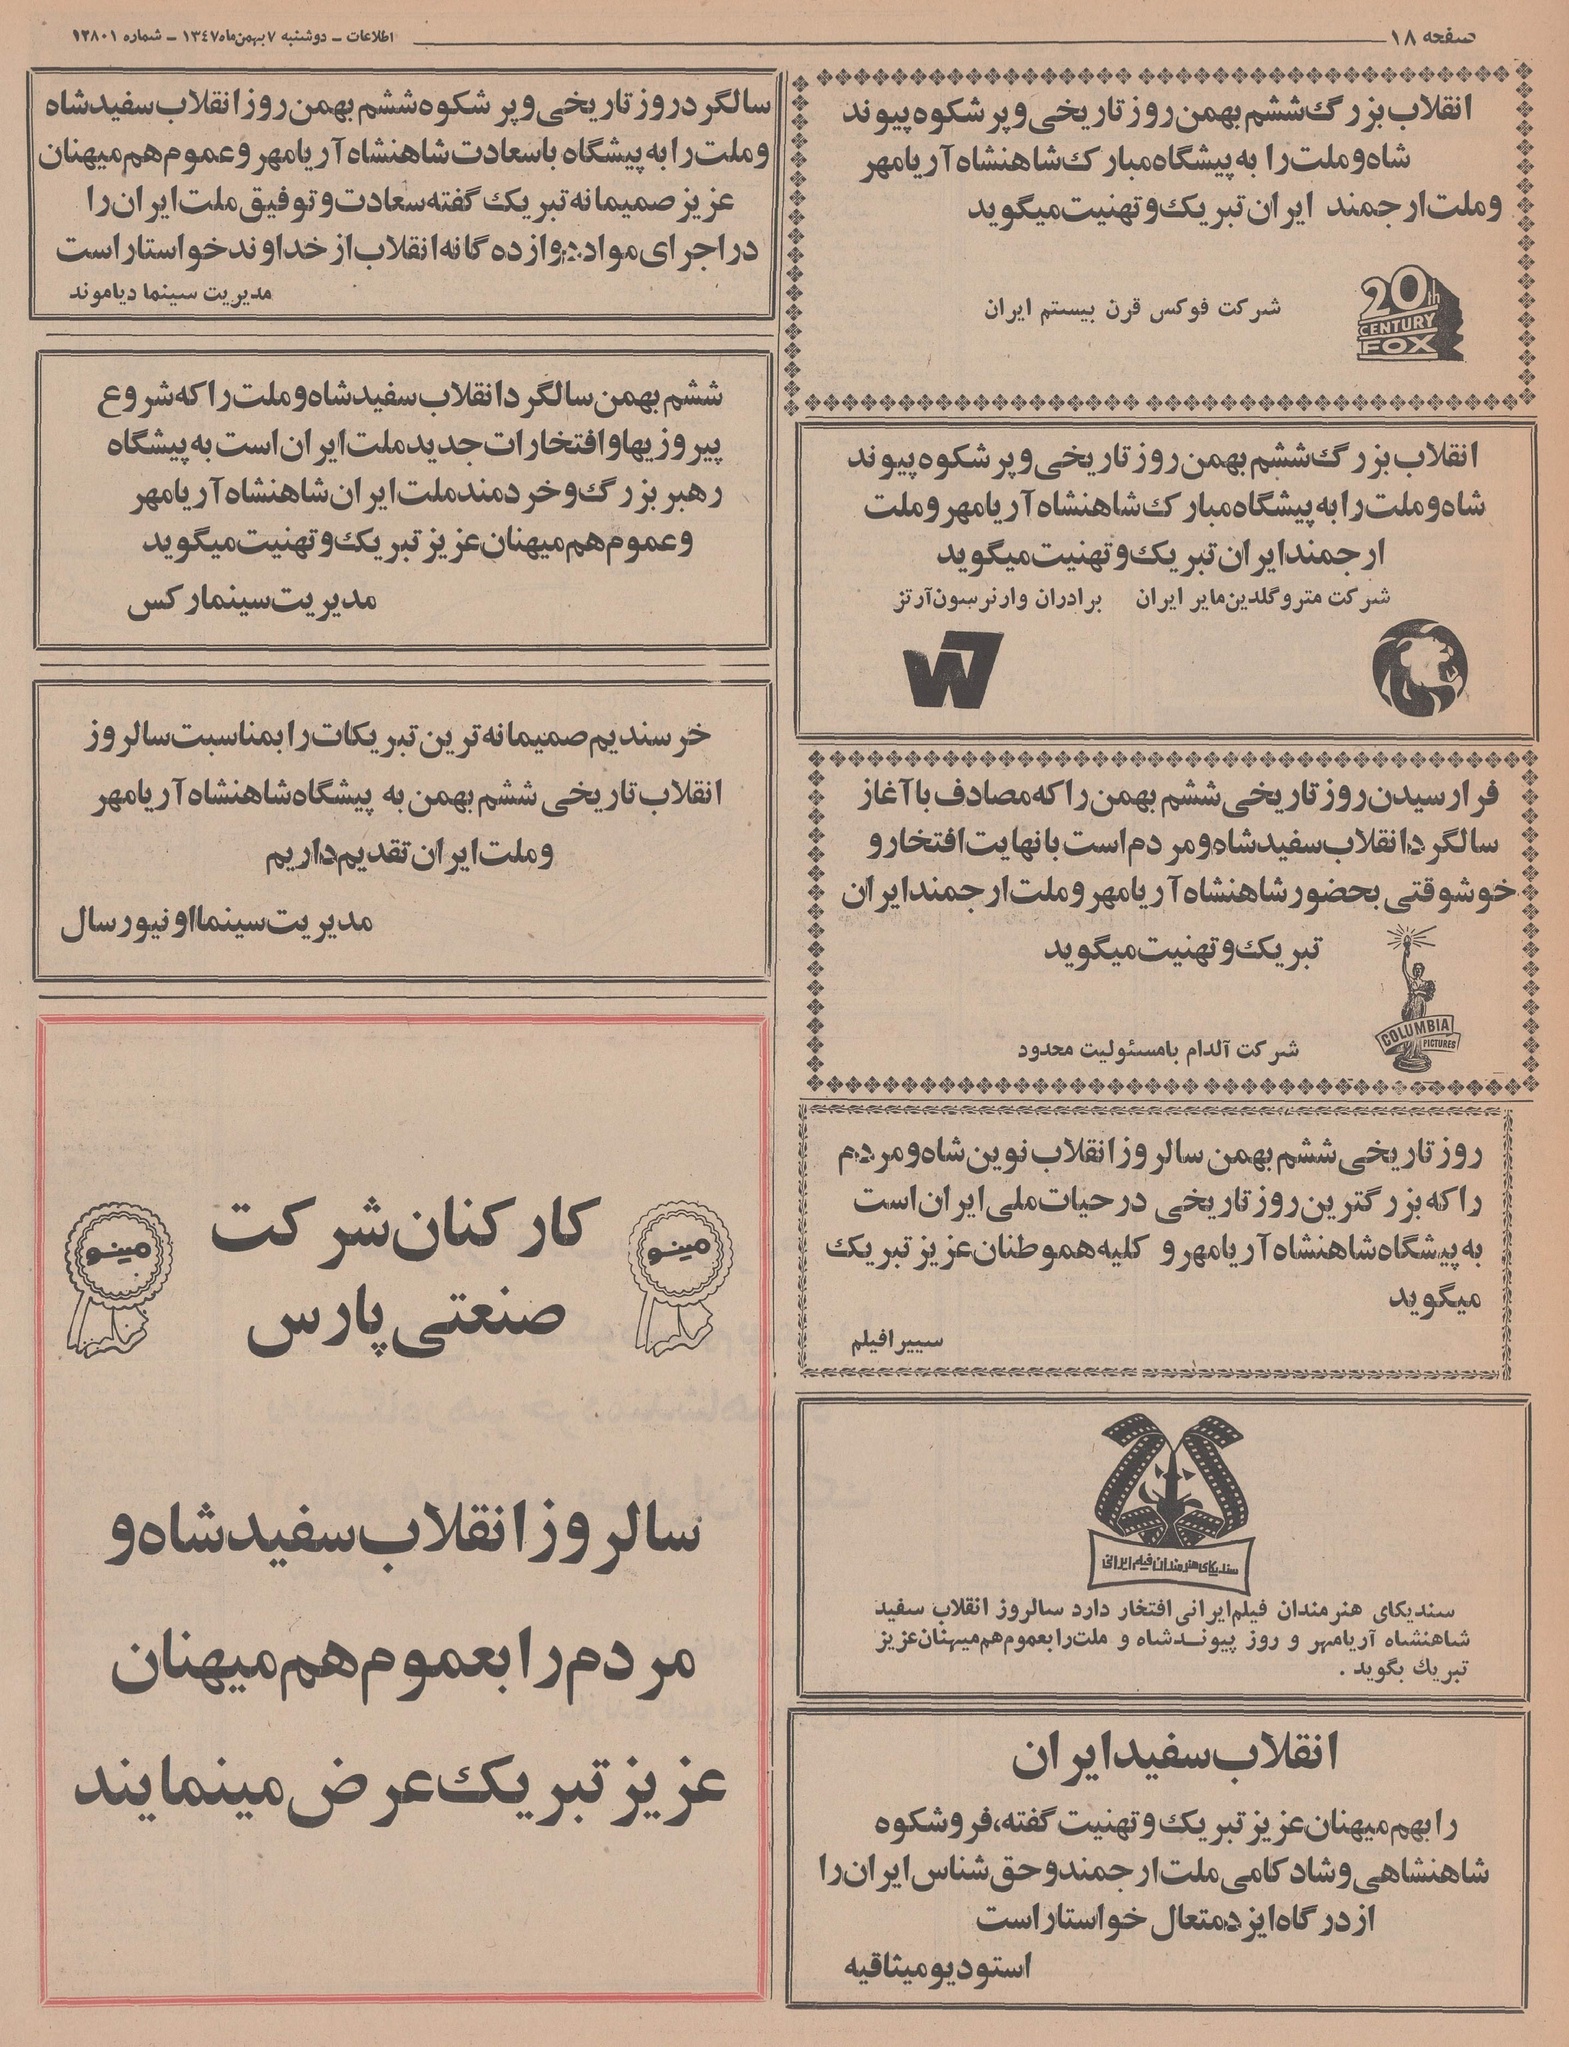 صفحه ۱۸
اطلاعات - دوشنبه ۷ بهمن ماه ۱۳۴۷ - شماره ۱۲۸۰۱
انقلاب بزرگ ششم بهمن روز تاریخی و پر شکوه پیوند
شاه و ملت را به پیشگاه مبارک شاهنشاه آریامهر
و ملت ارجمند ایران تبریک و تهنیت میگوید
20th
CENTURY
FOX
شرکت فوکس قرن بیستم ایران
انقلاب بزرگ ششم بهمن روز تاریخی و پر شکوه پیوند
شاه و ملت را به پیشگاه مبارک شاهنشاه آریامهر و ملت
ارجمند ایران تبریک و تهنیت میگوید
شرکت متروگلدین مایر ایران برادران وارنر سون آرتز
W7
فرا رسیدن روز تاریخی ششم بهمن را که مصادف با آغاز
سالگرد انقلاب سفید شاه و مردم است با نهایت افتخار و
خوشوقتی بحضور شاهنشاه آریامهر و ملت ارجمند ایران
تبریک و تهنیت میگوید
COLUMBIA
PICTURES
شرکت آلدام با مسئولیت محدود
روز تاریخی ششم بهمن سالروز انقلاب نوین شاه و مردم
را که بزرگترین روز تاریخی در حیات ملی ایران است
به پیشگاه شاهنشاه آریامهر و کلیه هموطنان عزیز تبریک
میگوید
سییرا فیلم
سندیکای هنرمندان فیلم ایرانی
سندیکای هنرمندان فیلم ایرانی افتخار دارد سالروز انقلاب سفید
شاهنشاه آریامهر و روز پیوند شاه و ملت را بعموم هم میهنان عزیز
تبریک بگوید .
انقلاب سفید ایران
را بهم میهنان عزیز تبریک و تهنیت گفته، فر و شکوه
شاهنشاهی و شادکامی ملت ارجمند و حق شناس ایران را
از درگاه ایزد متعال خواستار است
استودیو میثاقیه
سالگرد روز تاریخی و پر شکوه ششم بهمن روز انقلاب سفید شاه
و ملت را به پیشگاه با سعادت شاهنشاه آریامهر و عموم هم میهنان
عزیز صمیمانه تبریک گفته سعادت و توفیق ملت ایران را
در اجرای مواد دوازده گانه انقلاب از خداوند خواستار است
مدیریت سینما دیاموند
ششم بهمن سالگرد انقلاب سفید شاه و ملت را که شروع
پیروزیها و افتخارات جدید ملت ایران است به پیشگاه
رهبر بزرگ و خردمند ملت ایران شاهنشاه آریامهر
و عموم هم میهنان عزیز تبریک و تهنیت میگوید
مدیریت سینما رکس
خرسندیم صمیمانه ترین تبریکات را بمناسبت سالروز
انقلاب تاریخی ششم بهمن به پیشگاه شاهنشاه آریامهر
و ملت ایران تقدیم داریم
مدیریت سینما اونیورسال
مینو
کارکنان شرکت
مینو
صنعتی پارس
سالروز انقلاب سفید شاه و
مردم را بعموم هم میهنان
عزیز تبریک عرض مینمایند